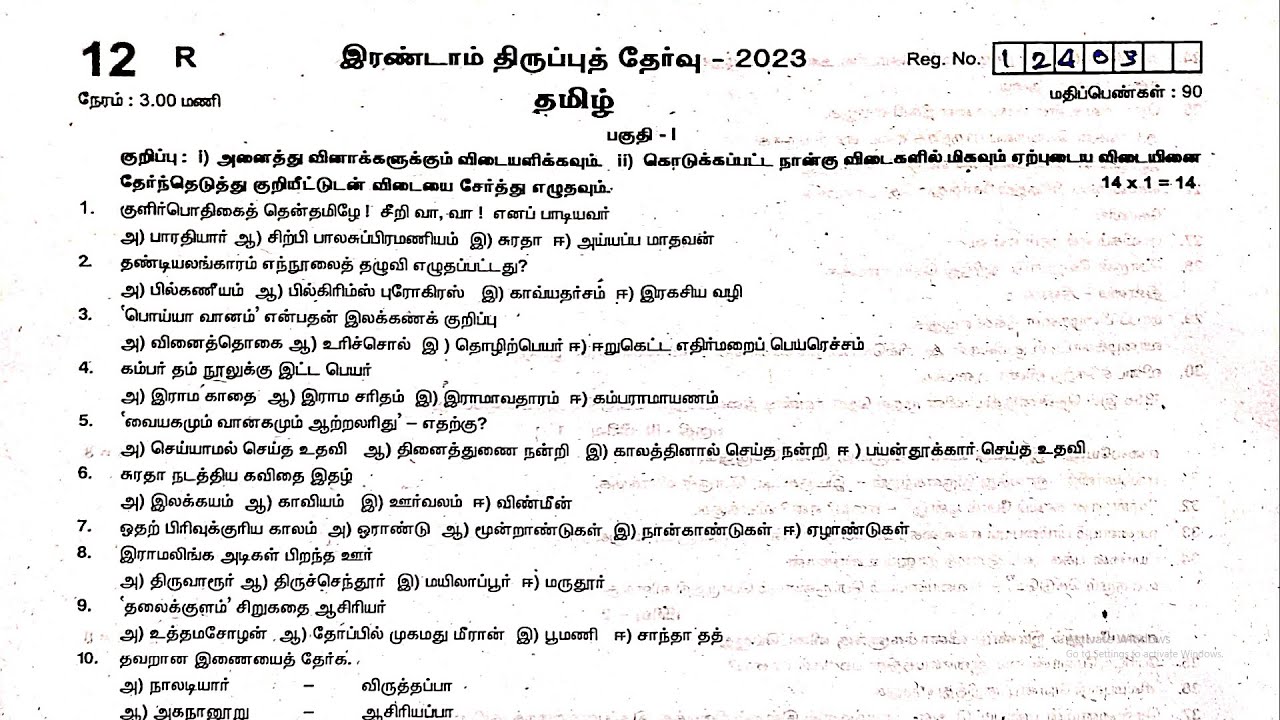 12 R இரண்டாம் திருப்புத் தேர்வு – 2023 Reg. No. 1 2 4 0 3
நேரம் : 3.00 மணி தமிழ் மதிப்பெண்கள் : 90
பகுதி - I
குறிப்பு : i) அனைத்து வினாக்களுக்கும் விடையளிக்கவும். ii) கொடுக்கப்பட்ட நான்கு விடைகளில் மிகவும் ஏற்புடைய விடையினை
தேர்ந்தெடுத்து குறியீட்டுடன் விடையை சேர்த்து எழுதவும். 14 x 1 = 14
1. குளிர்பொதிகைத் தென்தமிழே ! சீறி வா, வா ! எனப் பாடியவர்
அ) பாரதியார் ஆ) சிற்பி பாலசுப்பிரமணியம் இ) சுரதா ஈ) அய்யப்ப மாதவன்
2. தண்டியலங்காரம் எந்நூலைத் தழுவி எழுதப்பட்டது?
அ) பில்கணீயம் ஆ) பில்கிரிம்ஸ் புரோகிரஸ் இ) காவ்யதர்சம் ஈ) இரகசிய வழி
3. 'பொய்யா வானம்' என்பதன் இலக்கணக் குறிப்பு
அ) வினைத்தொகை ஆ) உரிச்சொல் இ ) தொழிற்பெயர் ஈ) ஈறுகெட்ட எதிர்மறைப் பெயரெச்சம்
4. கம்பர் தம் நூலுக்கு இட்ட பெயர்
அ) இராம காதை ஆ) இராம சரிதம் இ) இராமாவதாரம் ஈ) கம்பராமாயணம்
5. 'வையகமும் வானகமும் ஆற்றலரிது' – எதற்கு?
அ) செய்யாமல் செய்த உதவி ஆ) தினைத்துணை நன்றி இ) காலத்தினால் செய்த நன்றி ஈ ) பயன்தூக்கார் செய்த உதவி
6. சுரதா நடத்திய கவிதை இதழ்
அ) இலக்கயம் ஆ) காவியம் இ) ஊர்வலம் ஈ) விண்மீன்
7. ஒதற் பிரிவுக்குரிய காலம் அ) ஓராண்டு ஆ) மூன்றாண்டுகள் இ) நான்காண்டுகள் ஈ) ஏழாண்டுகள்
8. இராமலிங்க அடிகள் பிறந்த ஊர்
அ) திருவாரூர் ஆ) திருச்செந்தூர் இ) மயிலாப்பூர் ஈ) மருதூர்
9. 'தலைக்குளம்' சிறுகதை ஆசிரியர்
அ) உத்தமசோழன் ஆ) தோப்பில் முகமது மீரான் இ) பூமணி ஈ) சாந்தா தத்
Activate Windows
Go to Settings to activate Windows.
10. தவறான இணையைத் தேர்க.
அ) நாலடியார் – விருத்தப்பா
ஆ) அகநானூறு – ஆசிரியப்பா